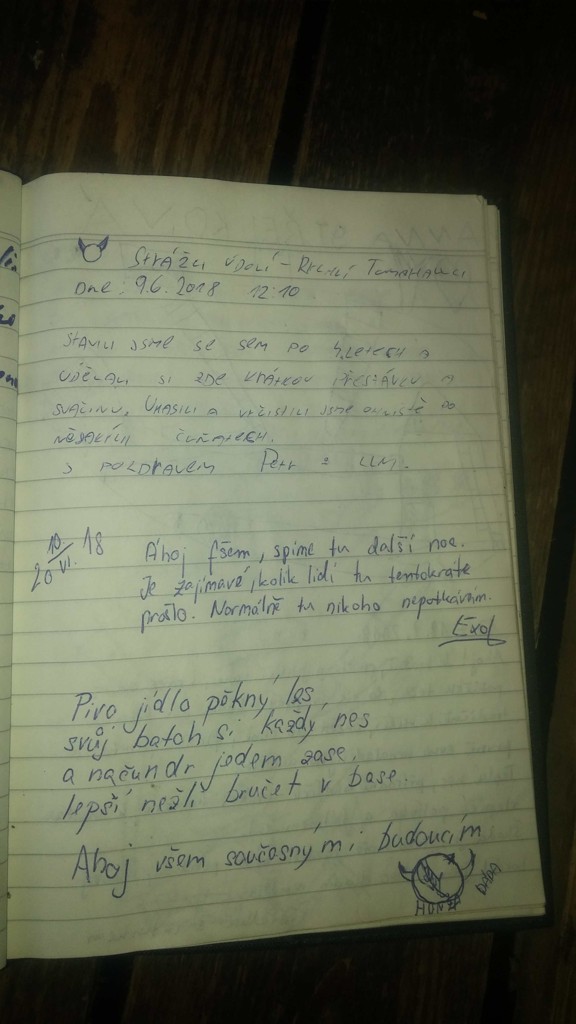 Strážci údolí - Rychlí Tomahawci
Dne: 9.6.2018 12:10
Stavili jsme se sem po 4 letech a
udělali si zde krátkou přestávku a
svačinu. Uhasili a vyčistili jsme ohniště po
nějakých čuňatech.
S pozdravem Petr
10/VI. 2018
Ahoj fšem, spíme tu další noc.
Je zajímavé, kolik lidí tu tentokráte
prošlo. Normálně tu nikoho nepotkávám.
Exot
Pivo jídlo pěkný les
svůj batoh si každý nes
a načundr jedem zase,
lepší nežli bručet v base.
Ahoj všem současným i budoucím
HONZA